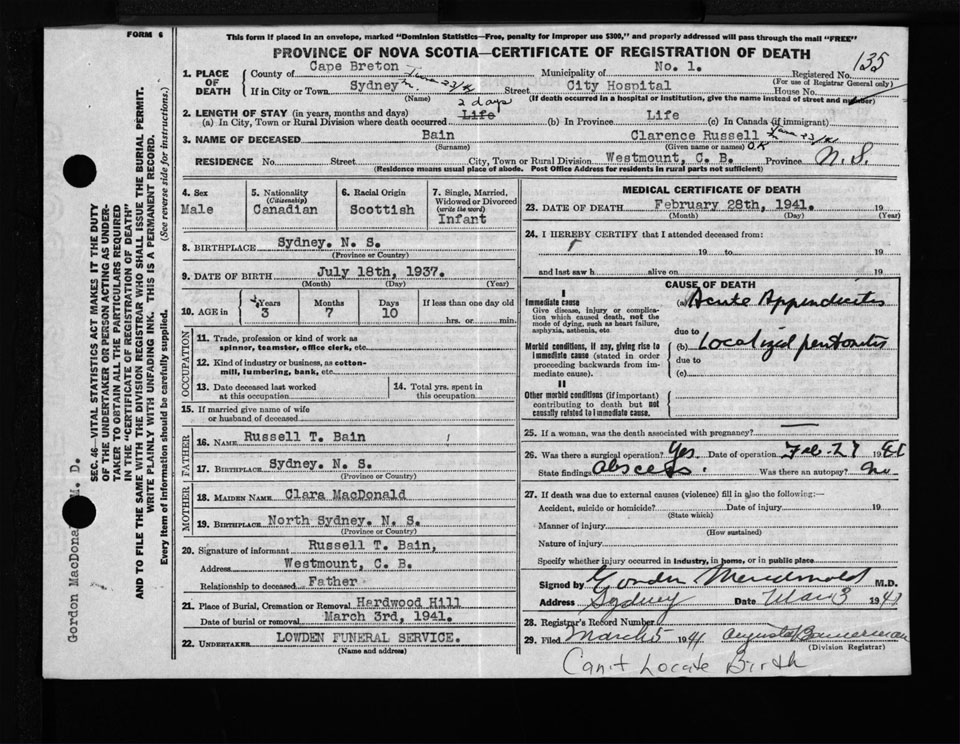 FORM 6
This form if placed in an envelope, marked "Dominion Statistics—Free, penalty for improper use $300," and properly addressed will pass through the mail "FREE"
PROVINCE OF NOVA SCOTIA—CERTIFICATE OF REGISTRATION OF DEATH
135
1. PLACE OF DEATH
County of Cape Breton Municipality of No. 1. Registered No.
(For use of Registrar General only)
If in City or Town Sydney Street City Hospital House No.
(Name) (If death occurred in a hospital or institution, give the name instead of street and number)
2. LENGTH OF STAY (in years, months and days) 2 days
(a) In City, Town or Rural Division where death occurred Life (b) In Province Life (c) In Canada (if immigrant)
3. NAME OF DECEASED Bain Clarence Russell
(Surname) (Given name or names) OK
RESIDENCE No. Street City, Town or Rural Division Westmount, C. B. Province N. S.
(Residence means usual place of abode. Post Office Address for residents in rural parts not sufficient)
4. Sex Male
5. Nationality (Citizenship) Canadian
6. Racial Origin Scottish
7. Single, Married, Widowed or Divorced (write the word) Infant
8. BIRTHPLACE Sydney. N. S.
(Province or Country)
9. DATE OF BIRTH July 18th, 1937.
(Month) (Day) (Year)
10. AGE in Years 3 Months 7 Days 10 If less than one day old hrs. or min.
OCCUPATION
11. Trade, profession or kind of work as spinner, teamster, office clerk, etc.
12. Kind of industry or business, as cotton-mill, lumbering, bank, etc.
13. Date deceased last worked at this occupation
14. Total yrs. spent in this occupation
15. If married give name of wife or husband of deceased
FATHER
16. NAME Russell T. Bain
17. BIRTHPLACE Sydney. N. S.
MOTHER
18. MAIDEN NAME Clara MacDonald
19. BIRTHPLACE North Sydney. N. S.
(Province or Country)
20. Signature of informant Russell T. Bain,
Address Westmount, C. B.
Relationship to deceased Father
21. Place of Burial, Cremation or Removal Hardwood Hill
Date of burial or removal March 3rd, 1941.
22. UNDERTAKER LOWDEN FUNERAL SERVICE.
(Name and address)
MEDICAL CERTIFICATE OF DEATH
23. DATE OF DEATH February 28th, 1941. 19
(Month) (Day) (Year)
24. I HEREBY CERTIFY that I attended deceased from:
19 to 19
and last saw h alive on 19
CAUSE OF DEATH
I
Immediate cause (a) Acute Appendicitis
Give disease, injury or complication which caused death, not the mode of dying, such as heart failure, asphyxia, asthenia, etc.
due to
Morbid conditions, if any, giving rise to immediate cause (stated in order proceeding backwards from immediate cause). (b) Localized peritonitis
due to
(c)
II
Other morbid conditions (if important) contributing to death but not causally related to immediate cause.
25. If a woman, was the death associated with pregnancy?
26. Was there a surgical operation? Yes Date of operation Feb. 27 19
State findings abscess. Was there an autopsy? no
27. If death was due to external causes (violence) fill in also the following:—
Accident, suicide or homicide? Date of injury 19
(State which)
Manner of injury
(How sustained)
Nature of injury
Specify whether injury occurred in industry, in home, or in public place
Signed by Gordon MacDonald M.D.
Address Sydney Date Mar 3 1941
28. Registrar's Record Number
29. Filed March 5 1941 Bannerman
(Division Registrar)
Can't Locate Birth
SEC. 46—VITAL STATISTICS ACT MAKES IT THE DUTY
OF THE UNDERTAKER OR PERSON ACTING AS UNDER-
TAKER TO OBTAIN ALL THE PARTICULARS REQUIRED
IN THE "CERTIFICATE OF REGISTRATION OF DEATH"
AND TO FILE THE SAME WITH THE DIVISION REGISTRAR WHO SHALL ISSUE THE BURIAL PERMIT.
WRITE PLAINLY WITH UNFADING INK. THIS IS A PERMANENT RECORD.
Every item of Information should be carefully supplied. (See reverse side for instructions.)
Gordon MacDona M. D.